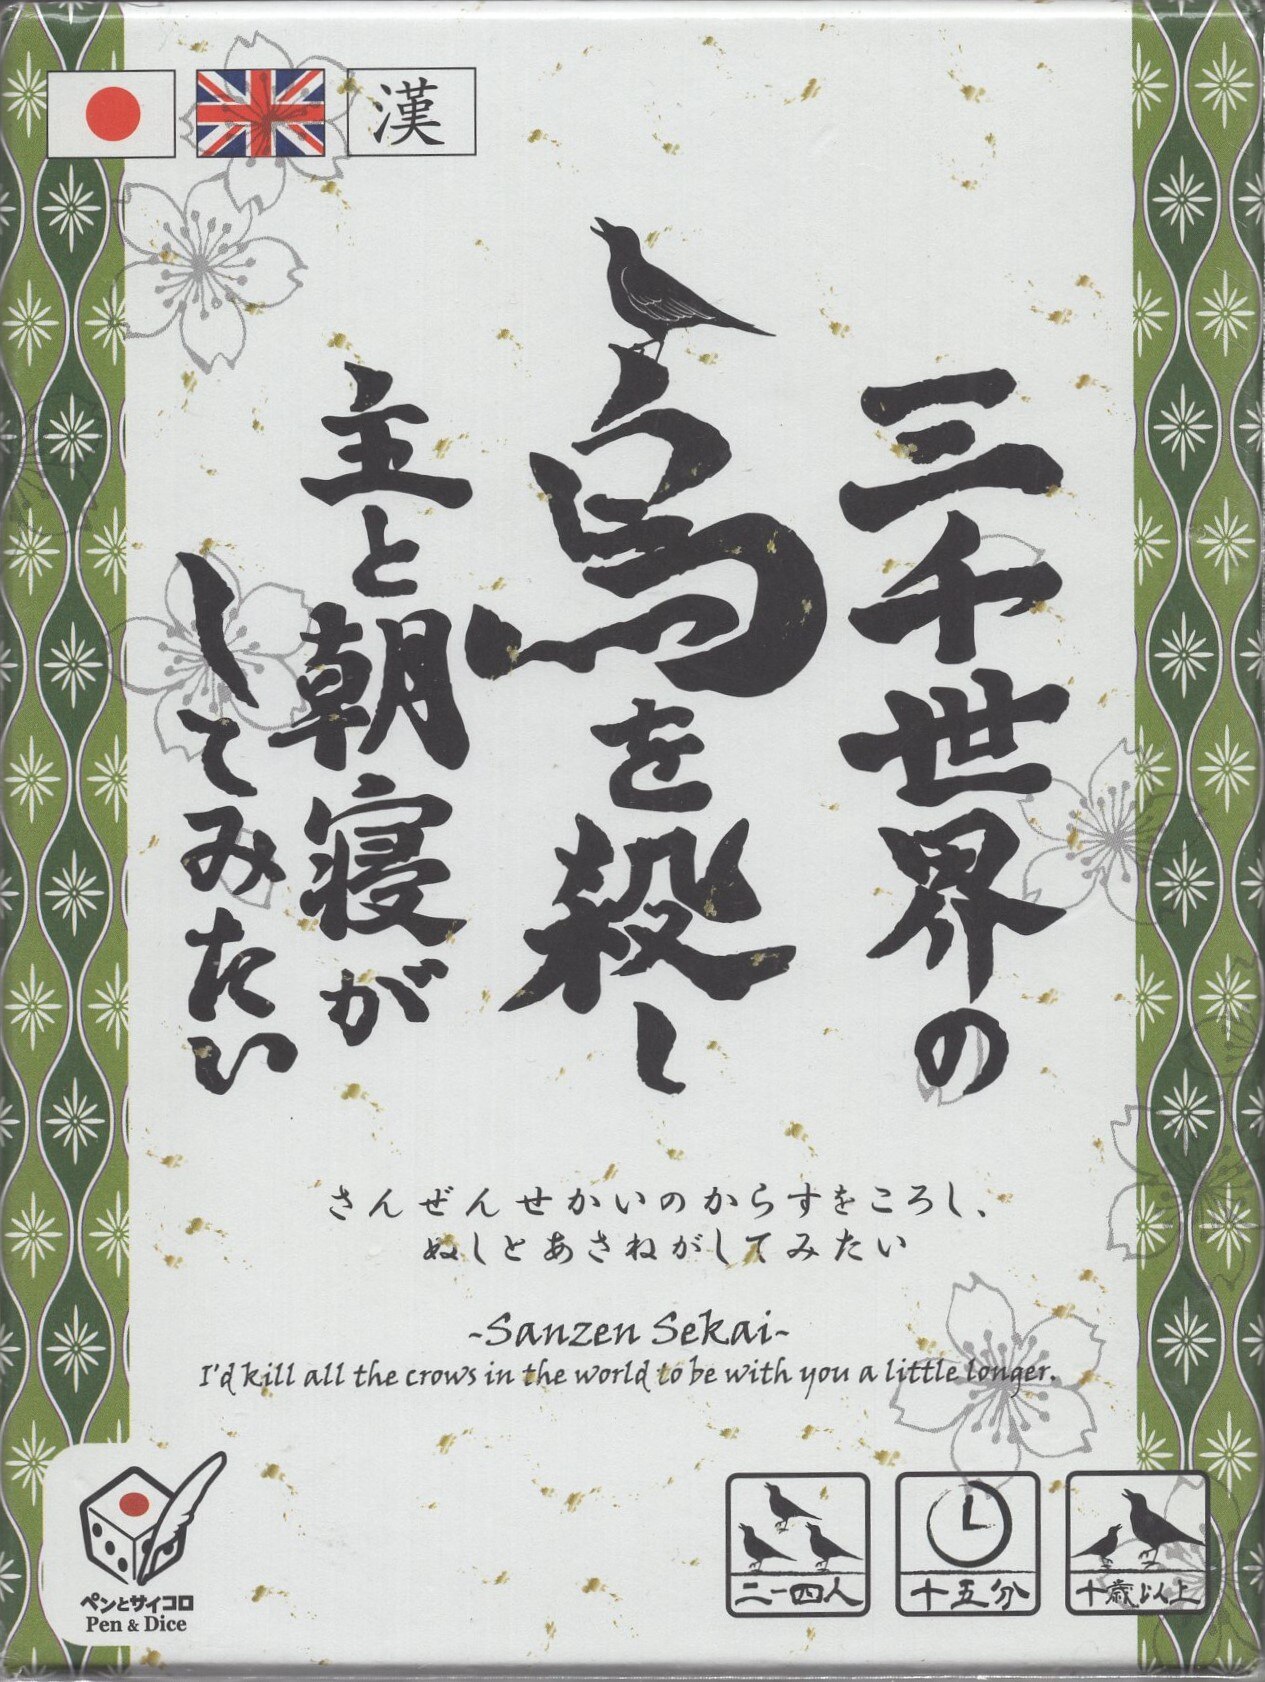 漢
三千世界の
烏を殺し
主と朝寝が
してみたい
さんぜんせかいのからすをころし、
ぬしとあさねがしてみたい
-Sanzen Sekai-
I'd kill all the crows in the world to be with you a little longer.
ペンとサイコロ
Pen & Dice
二ー四人
十五分
十歳以上